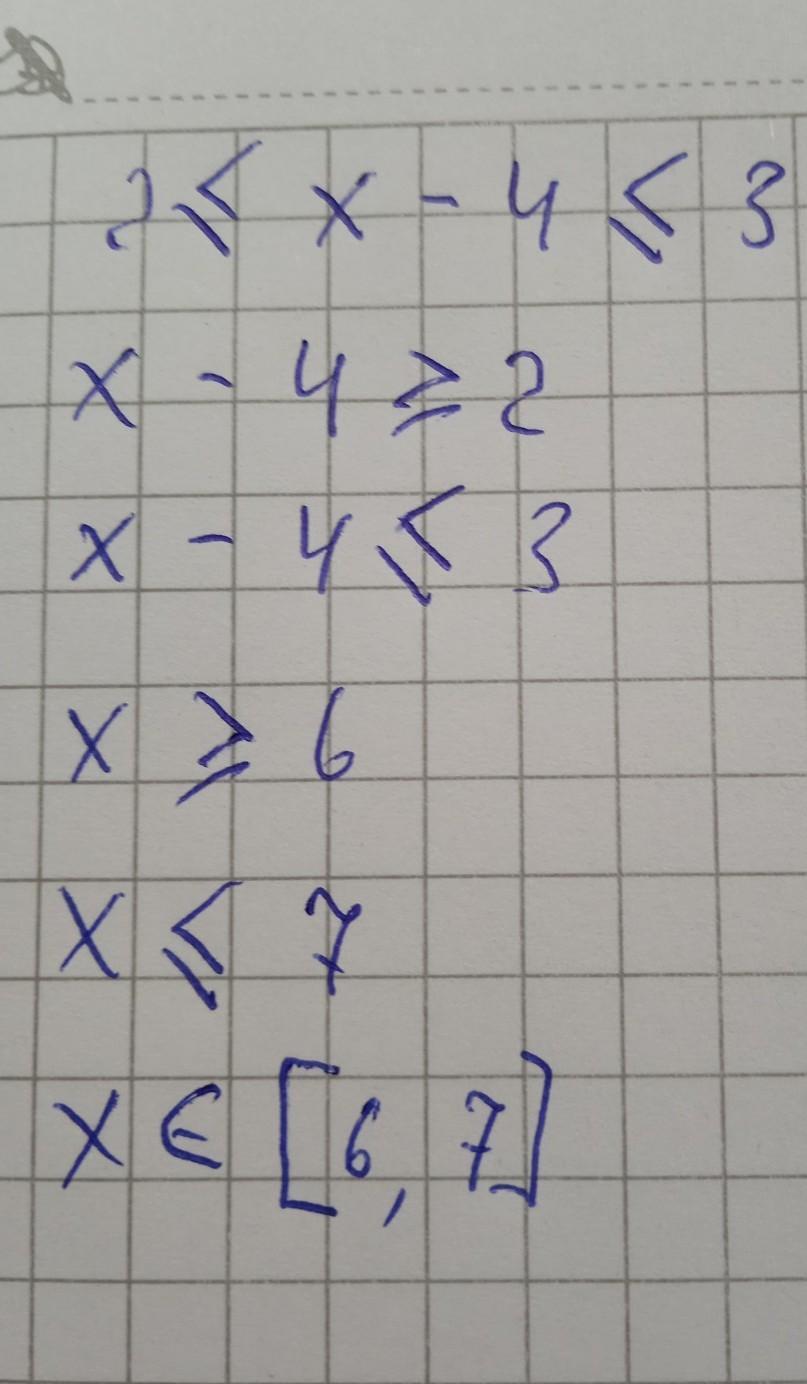 2 ≤ x - 4 ≤ 3
x - 4 ≥ 2
x - 4 ≤ 3
x ≥ 6
x ≤ 7
x ∈ [6, 7]